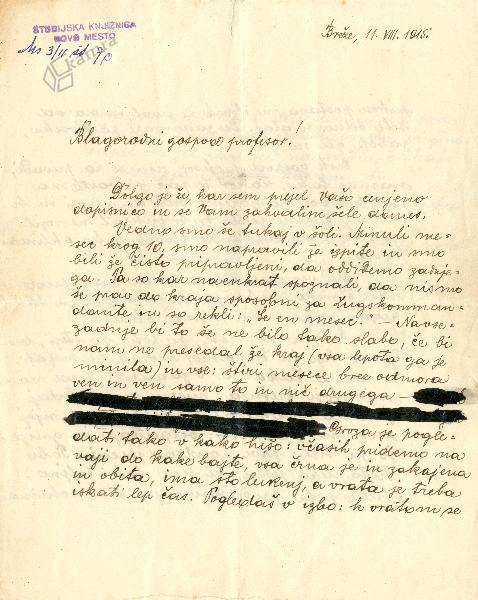 ŠTUDIJSKA KNJIŽNICA
NOVO MESTO
kamra
Brže, 11. VIII. 1915.
Blagorodni gospod profesor!
Dolgo je že, kar sem prejel Vašo cenjeno
dopisnico in se Vam zahvalim šele danes.
Vedno smo še tukaj v šoli. Minuli me-
sec krog 10. smo napravili že izpite in smo
bili že čisto pripravljeni, da odidemo zadnje-
ga. Pa so kar naenkrat spoznali, da nismo
še prav do kraja sposobni za zugskomman-
dante in so rekli: „Še en mesec." – Navse-
zadnje bi to še ne bilo tako slabo, če bi
nam ne presedal že kraj (vsa lepota ga je
minila) in vse: štiri mesece brez odmora
ven in ven samo to in nič drugega –
Groza je pogle-
dati tako v kako hišo: včasih pridemo na
vaji do kake bajte, vsa črna je in zakajena
in obita, ima sto lukenj, a vrata je treba
iskati lep čas. Pogledaš v izbo: k vratom se